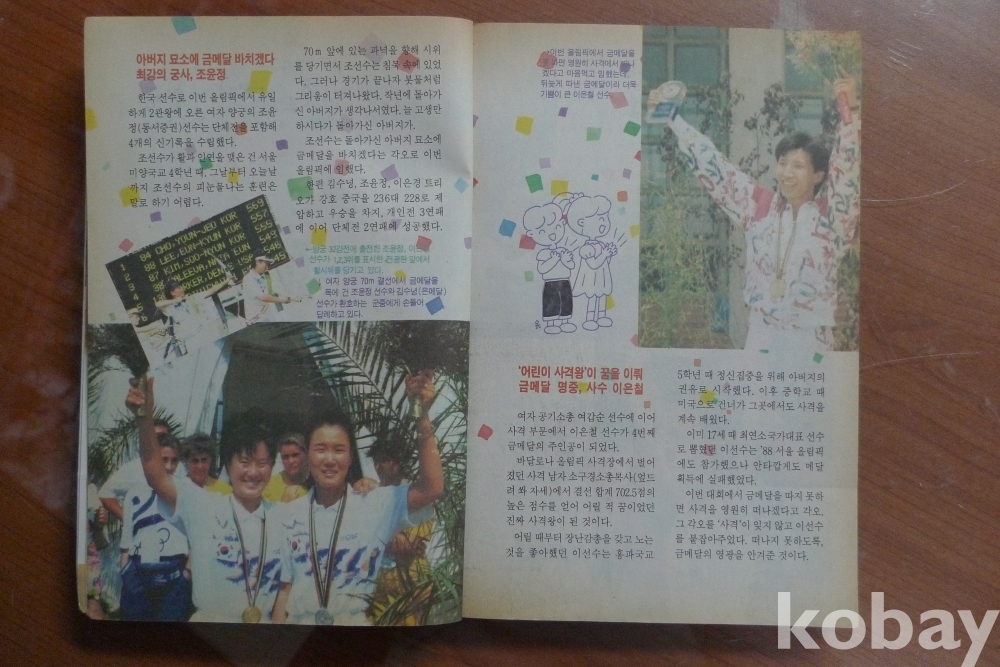 아버지 묘소에 금메달 바치겠다
최강의 궁사, 조윤정
한국 선수로 이번 올림픽에서 유일
하게 2관왕에 오른 여자 양궁의 조윤
정(동서증권)선수는 단체전을 포함해
4개의 신기록을 수립했다.
조선수가 활과 인연을 맺은 건 서울
미양국교 4학년 때. 그날부터 오늘날
까지 조선수의 피눈물나는 훈련은
말로 하기 어렵다.
70m 앞에 있는 과녁을 향해 시위
를 당기면서 조선수는 침묵 속에 있었
다. 그러나 경기가 끝나자 봇물처럼
그리움이 터져나왔다. 작년에 돌아가
신 아버지가 생각나서였다. 늘 고생만
하시다가 돌아가신 아버지가.
조선수는 돌아가신 아버지 묘소에
금메달을 바치겠다는 각오로 이번
올림픽에 임했다.
한편 김수녕, 조윤정, 이은경 트리
오가 강호 중국을 236대 228로 제
압하고 우승을 차지, 개인전 3연패
에 이어 단체전 2연패에 성공했다.
1 84 CHO,YOUN-JEO KOR 569
2 88 LEE,EUN-KYUN KOR 557
3 87 KIM,SOO-NYUN KOR 555
←양궁 32강전에 출전한 조윤정, 이은경
선수가 1,2,3위를 표시한 전광판 앞에서
활시위를 당기고 있다.
여자 양궁 70m 결선에서 금메달을
목에 건 조윤정 선수와 김수녕(은메달)
선수가 환호하는 군중에게 손들어
답례하고 있다.
←이번 올림픽에서 금메달을
못 따면 영원히 사격에서 떠나
겠다고 마음먹고 임했는데
뒤늦게 따낸 금메달이라 더욱
기쁨이 큰 이은철 선수.
'어린이 사격왕'이 꿈을 이뤄
금메달 명중, 사수 이은철
여자 공기소총 여갑순 선수에 이어
사격 부문에서 이은철 선수가 4번째
금메달의 주인공이 되었다.
바달로나 올림픽 사격장에서 벌어
졌던 사격 남자 소구경소총복사(엎드
려 쏴 자세)에서 결선 합계 702.5점의
높은 점수를 얻어 어릴 적 꿈이었던
진짜 사격왕이 된 것이다.
어릴 때부터 장난감총을 갖고 노는
것을 좋아했던 이선수는 홍파국교
5학년 때 정신집중을 위해 아버지의
권유로 시작했다. 이후 중학교 때
미국으로 건너가 그곳에서도 사격을
계속 배웠다.
이미 17세 때 최연소국가대표 선수
로 뽑혔던 이선수는 '88 서울 올림픽
에도 참가했으나 안타깝게도 메달
획득에 실패했었다.
이번 대회에서 금메달을 따지 못하
면 사격을 영원히 떠나겠다고 각오,
그 각오를 '사격'이 잊지 않고 이선수
를 붙잡아주었다. 떠나지 못하도록,
금메달의 영광을 안겨준 것이다.
kobay